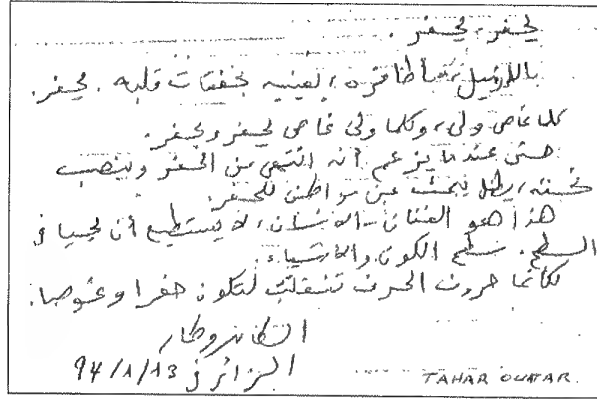 يحفر، يحفر.
بالإزميل، بأظافره، بعينيه بخفقات قلبه. يحفر.
كلما غاص ولى، وكلما ولى غاص يحفر ويحفر.
حتى عندما يزعم أنه انتهى من الحفر وينصب
تحفته، يظل يبحث عن مواطن للحفر.
هذا هو الفنان - الانسان، لا يستطيع أن يحيا في
السطح. سطح الكون والأشياء.
لكأنما حروف الحرف تنفلت لتكون حفرا وغوصا.
الطاهر وطار
الجزائر في 94/1/13
TAHAR OUATAR.